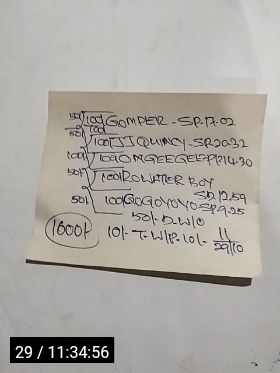 50/- 100/- GOMPER - SP. 17.02
50/- 100
100/- JJ QUINCY - SP. 20.32
100/- 100/- OMGEEGEE - SP. 14.30
50/- 100/- ROWATER BOY
SP. 12.59
50/- 100/- GOGOYOYO SP. 9.25
50/- D. W/O
1600/- 10/- T. W/P. 10/- 11
29/10
29 / 11:34:56